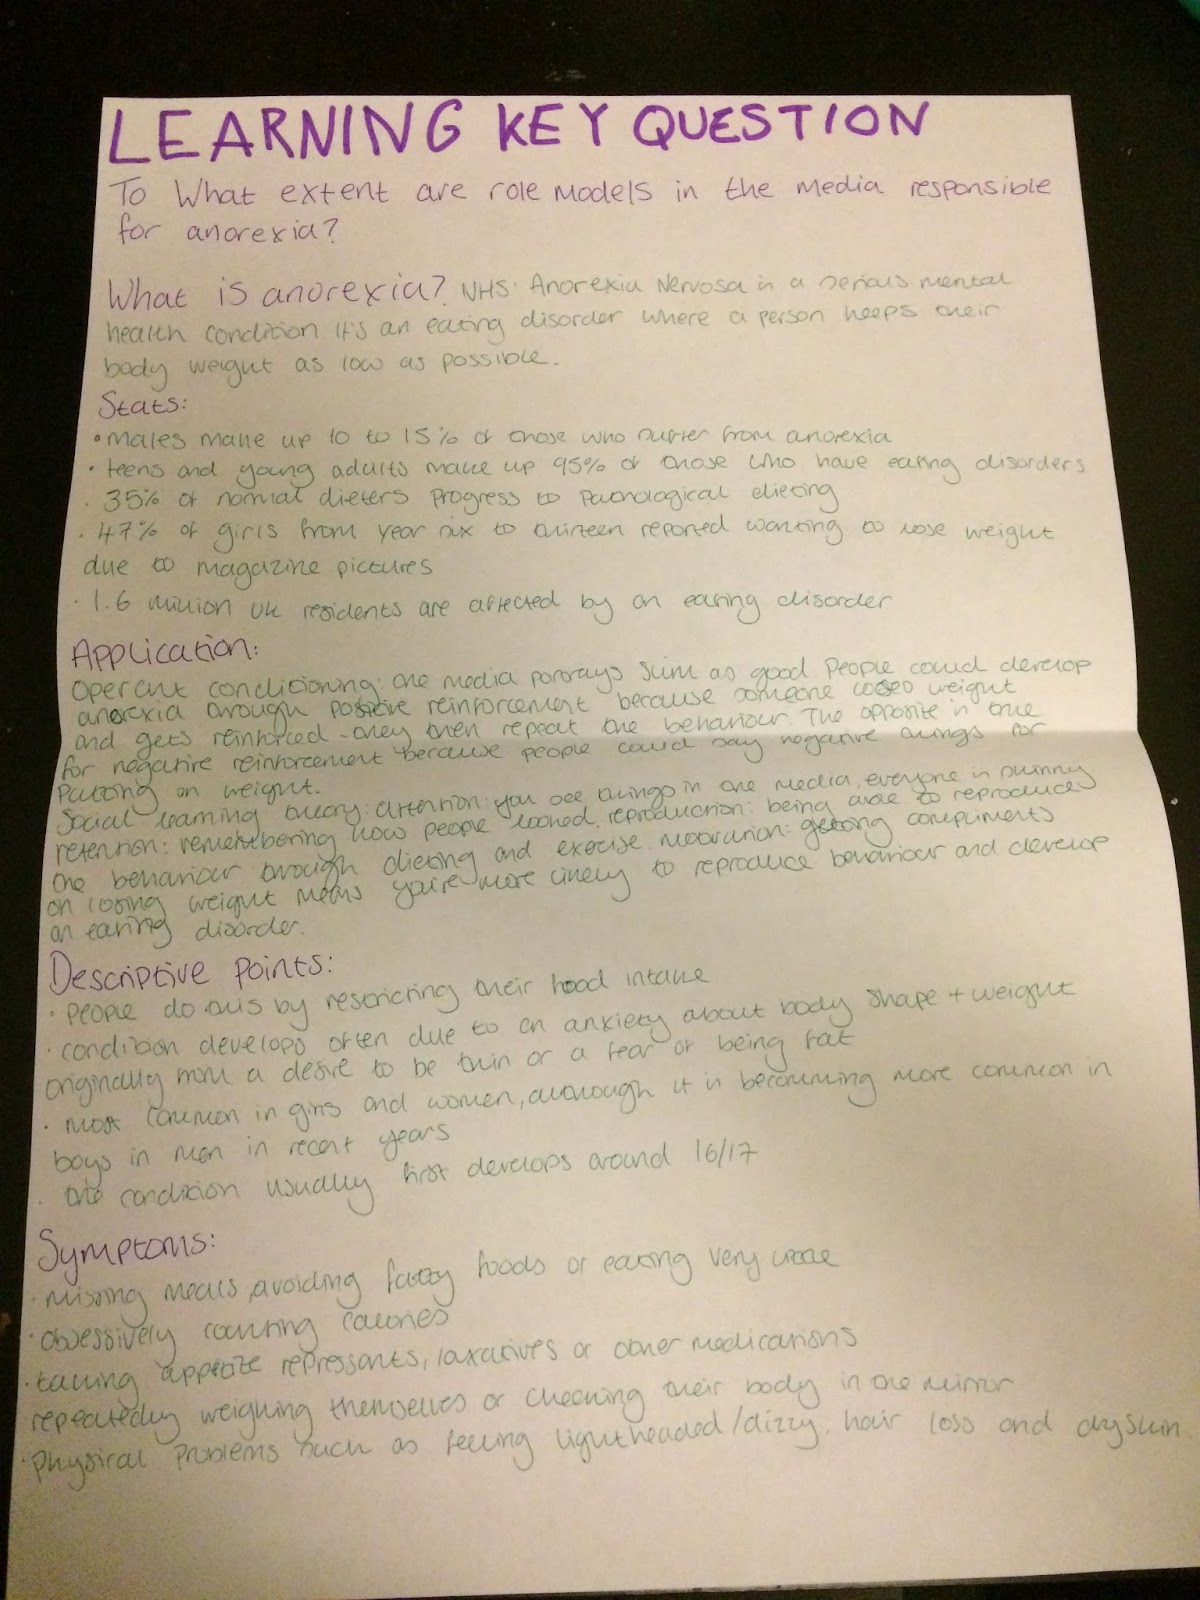 LEARNING KEY QUESTION
To What extent are role models in the media responsible
for anorexia?
What is anorexia? NHS: Anorexia Nervosa is a serious mental
health condition. It's an eating disorder where a person keeps their
body weight as low as possible.
Stats:
• males make up 10 to 15% of those who suffer from anorexia
• teens and young adults make up 95% of those who have eating disorders
• 35% of normal dieters progress to pathological dieting
• 47% of girls from year six to thirteen reported wanting to lose weight
due to magazine pictures
• 1.6 million UK residents are affected by an eating disorder
Application:
operant conditioning: the media portrays slim as good. People could develop
anorexia through positive reinforcement because someone looses weight
and gets reinforced - they then repeat the behaviour. The opposite is true
for negative reinforcement because people could say negative things for
putting on weight.
Social learning theory: attention: you see things in the media, everyone is skinny
retention: remembering how people looked. reproduction: being able to reproduce
the behaviour through dieting and exercise. motivation: getting compliments
on losing weight means you're more likely to reproduce behaviour and develop
an eating disorder.
Descriptive points:
• people do this by restricting their food intake
• condition develops often due to an anxiety about body shape + weight
originally from a desire to be thin or a fear of being fat
• most common in girls and women, although it is becomming more common in
boys in men in recent years
• the condition usually first develops around 16/17
Symptoms:
• missing meals, avoiding fatty foods or eating very little
• obsessively counting calories
• taking appetite repressants, laxatives or other medications
repeatedly weighing themselves or checking their body in the mirror
• physical problems such as feeling lightheaded/dizzy, hair loss and dry skin.